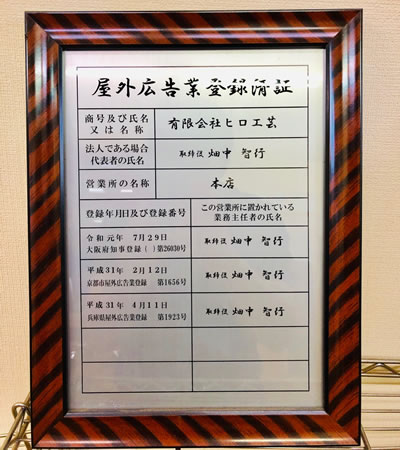 屋外広告業登録済証
商号及び氏名
又は名称
有限会社ヒロ工芸
法人である場合
代表者の氏名
取締役 畑中 智行
営業所の名称
本店
登録年月日及び登録番号
この営業所に置かれている
業務主任者の氏名
令和元年 7月29日
大阪府知事登録 ( ) 第26030号
取締役 畑中 智行
平成31年 2月12日
京都市屋外広告業登録 第1656号
取締役 畑中 智行
平成31年 4月11日
兵庫県屋外広告業登録 第1923号
取締役 畑中 智行